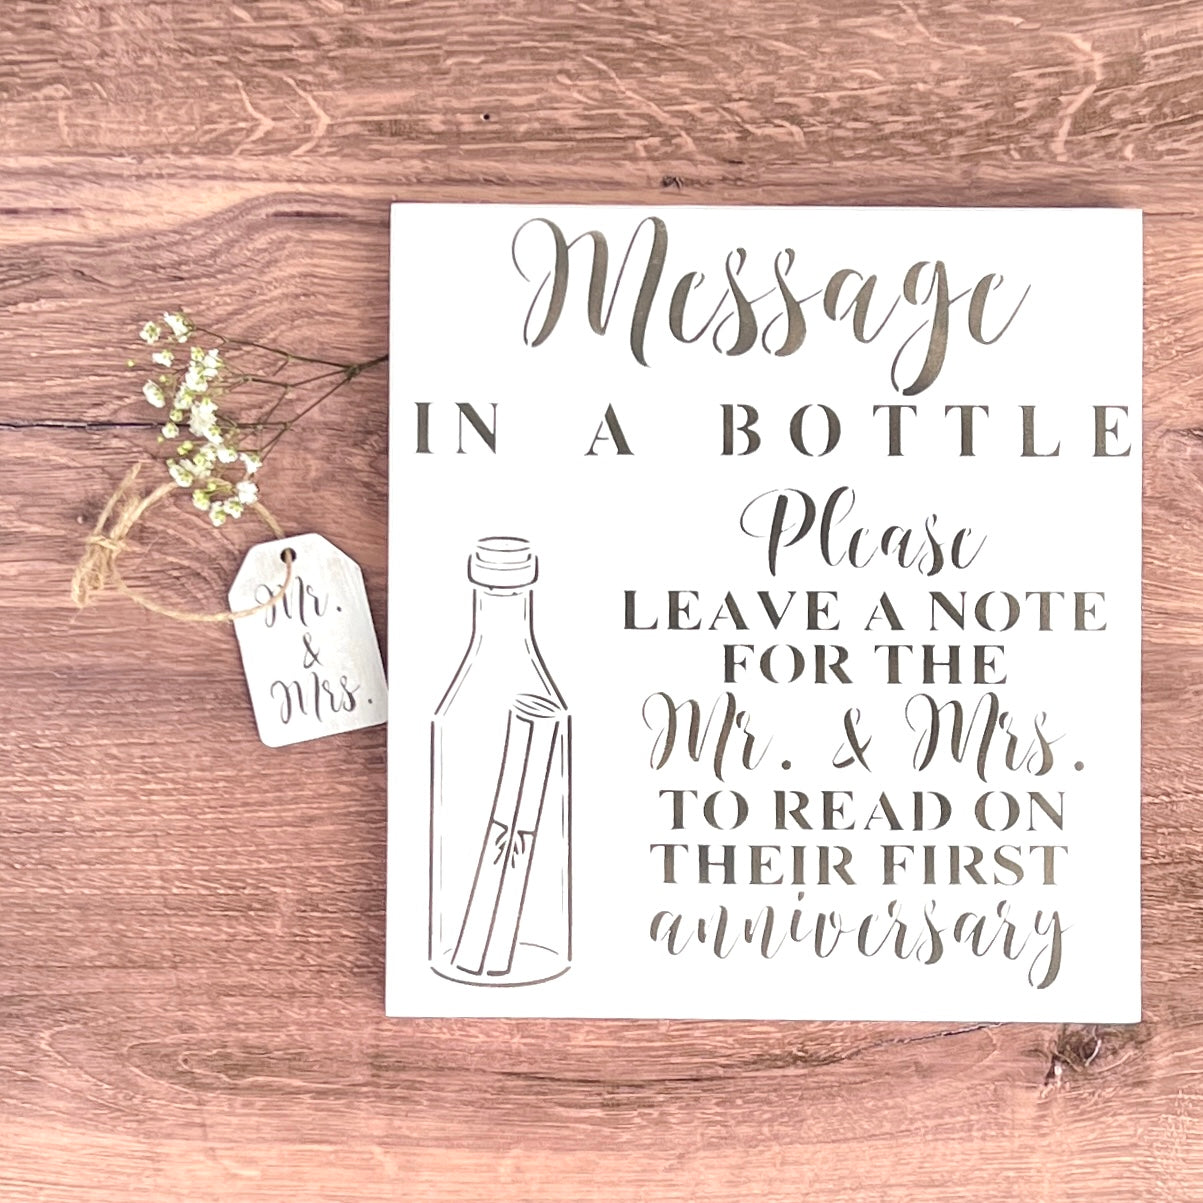 Message
IN A BOTTLE
Please
LEAVE A NOTE
FOR THE
Mr. & Mrs.
TO READ ON
THEIR FIRST
anniversary
Mr.
&
Mrs.